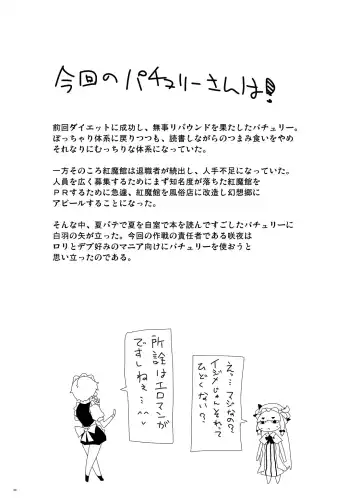 今回のパチュリーさんは!
前回ダイエットに成功し、無事リバウンドを果たしたパチュリー。
ぽっちゃり体系に戻りつつも、読書しながらのつまみ食いをやめ
それなりにむっちりな体系になっていた。
一方そのころ紅魔館は退職者が続出し、人手不足になっていた。
人員を広く募集するためにまず知名度が落ちた紅魔館を
PRするために急遽、紅魔館を風俗店に改造し幻想郷に
アピールすることになった。
そんな中、夏バテで夏を自室で本を読んですごしたパチュリーに
白羽の矢が立った。今回の作戦の責任者である咲夜は
ロリとデブ好みのマニア向けにパチュリーを使おうと
思い立ったのである。
え…マジなの?
イジメじゃんそれって
ひどくない?
所詮はエロマンガ
ですしねぇ…^^